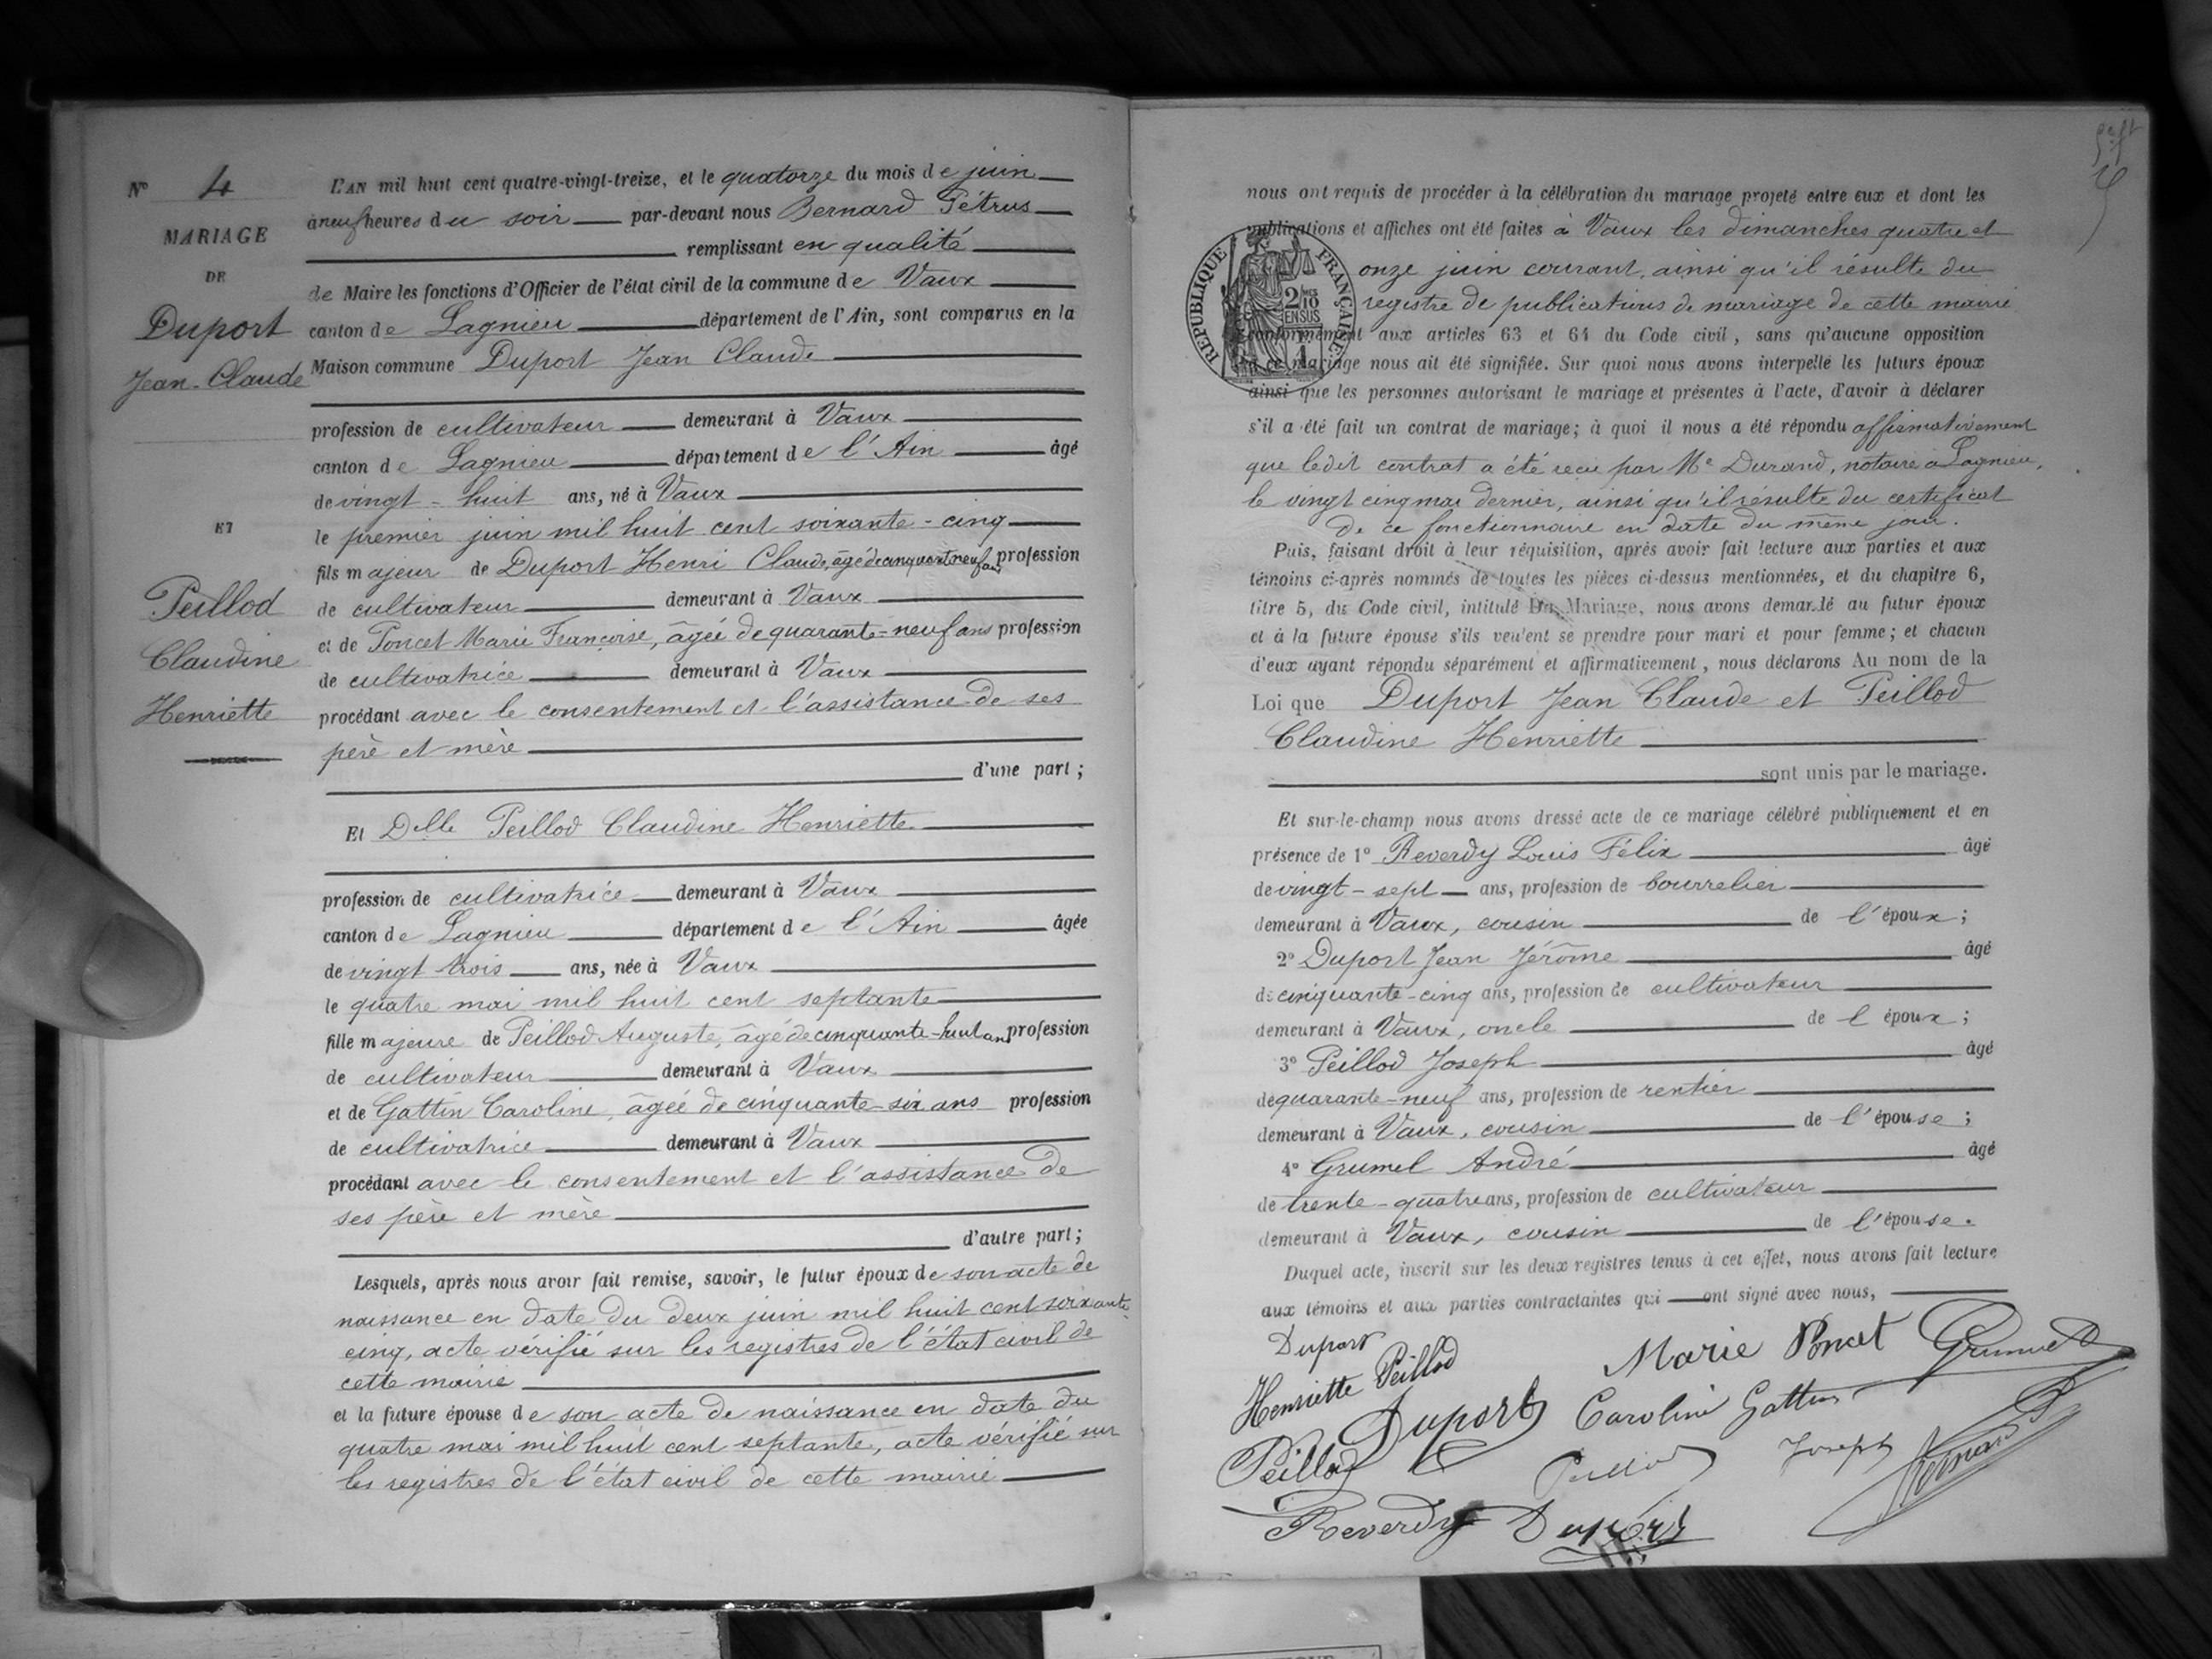 N° 4
MARIAGE
DE
Duport
Jean-Claude
ET
Peillod
Claudine
Henriette
L'AN mil huit cent quatre-vingt-treize, et le quatorze du mois de juin
à neuf heures du soir par-devant nous Bernard Pétrus
remplissant en qualité
de Maire les fonctions d'Officier de l'état civil de la commune de Vaux
canton de Lagnieu département de l'Ain, sont comparus en la
Maison commune Duport Jean Claude
profession de cultivateur demeurant à Vaux
canton de Lagnieu département de l'Ain âgé
de vingt-huit ans, né à Vaux
le premier juin mil huit cent soixante-cinq
fils majeur de Duport Henri Claude, âgé de cinquante neuf ans profession
de cultivateur demeurant à Vaux
et de Poncet Marie Françoise, âgée de quarante-neuf ans profession
de cultivatrice demeurant à Vaux
procédant avec le consentement et l'assistance de ses
père et mère
d'une part ;
Et Delle Peillod Claudine Henriette
profession de cultivatrice demeurant à Vaux
canton de Lagnieu département de l'Ain âgée
de vingt trois ans, née à Vaux
le quatre mai mil huit cent septante
fille majeure de Peillod Auguste, âgé de cinquante-huit ans profession
de cultivateur demeurant à Vaux
et de Gattin Caroline, âgée de cinquante-six ans profession
de cultivatrice demeurant à Vaux
procédant avec le consentement et l'assistance de
ses père et mère
d'autre part ;
Lesquels, après nous avoir fait remise, savoir, le futur époux de son acte de
naissance en date du deux juin mil huit cent soixante
cinq, acte vérifié sur les registres de l'état civil de
cette mairie
et la future épouse de son acte de naissance en date du
quatre mai mil huit cent septante, acte vérifié sur
les registres de l'état civil de cette mairie
nous ont requis de procéder à la célébration du mariage projeté entre eux et dont les
publications et affiches ont été faites à Vaux les dimanches quatre et
onze juin courant, ainsi qu'il résulte du
registre de publications de mariage de cette mairie
RÉPUBLIQUE FRANÇAISE
conformément aux articles 63 et 64 du Code civil, sans qu'aucune opposition
à ce mariage nous ait été signifiée. Sur quoi nous avons interpellé les futurs époux
ainsi que les personnes autorisant le mariage et présentes à l'acte, d'avoir à déclarer
s'il a été fait un contrat de mariage ; à quoi il nous a été répondu affirmativement
que ledit contrat a été reçu par Me Durand, notaire à Lagnieu,
le vingt cinq mai dernier, ainsi qu'il résulte du certificat
de ce fonctionnaire en date du même jour.
Puis, faisant droit à leur réquisition, après avoir fait lecture aux parties et aux
témoins ci-après nommés de toutes les pièces ci-dessus mentionnées, et du chapitre 6,
titre 5, du Code civil, intitulé Du Mariage, nous avons demandé au futur époux
et à la future épouse s'ils veulent se prendre pour mari et pour femme ; et chacun
d'eux ayant répondu séparément et affirmativement, nous déclarons Au nom de la
Loi que Duport Jean Claude et Peillod
Claudine Henriette
sont unis par le mariage.
Et sur-le-champ nous avons dressé acte de ce mariage célébré publiquement et en
présence de 1° Reverdy Louis Félix âgé
de vingt-sept ans, profession de bourrelier
demeurant à Vaux, cousin de l'époux ;
2° Duport Jean Jérôme âgé
de cinquante-cinq ans, profession de cultivateur
demeurant à Vaux, oncle de l'époux ;
3° Peillod Joseph âgé
de quarante-neuf ans, profession de rentier
demeurant à Vaux, cousin de l'épouse ;
4° Grumel André âgé
de trente-quatre ans, profession de cultivateur
demeurant à Vaux, cousin de l'épouse.
Duquel acte, inscrit sur les deux registres tenus à cet effet, nous avons fait lecture
aux témoins et aux parties contractantes qui ont signé avec nous,
Duport Marie Poncet Grumel
Henriette Peillod
Duport Caroline Gattin
Peillod Peillod Joseph Bernard
Reverdy Duport